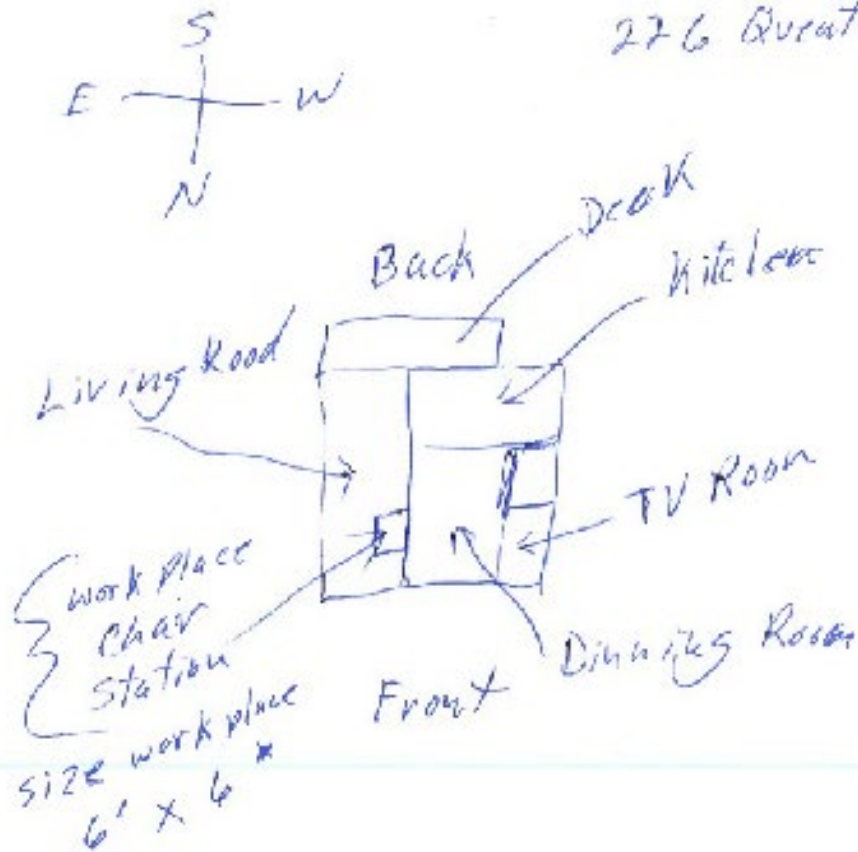 S
226
E W
N
Deak
Back
Kitcleee
Living Rood
TV Room
work place
chair
station
Dinning Room
Front
size work place
6' x 6"